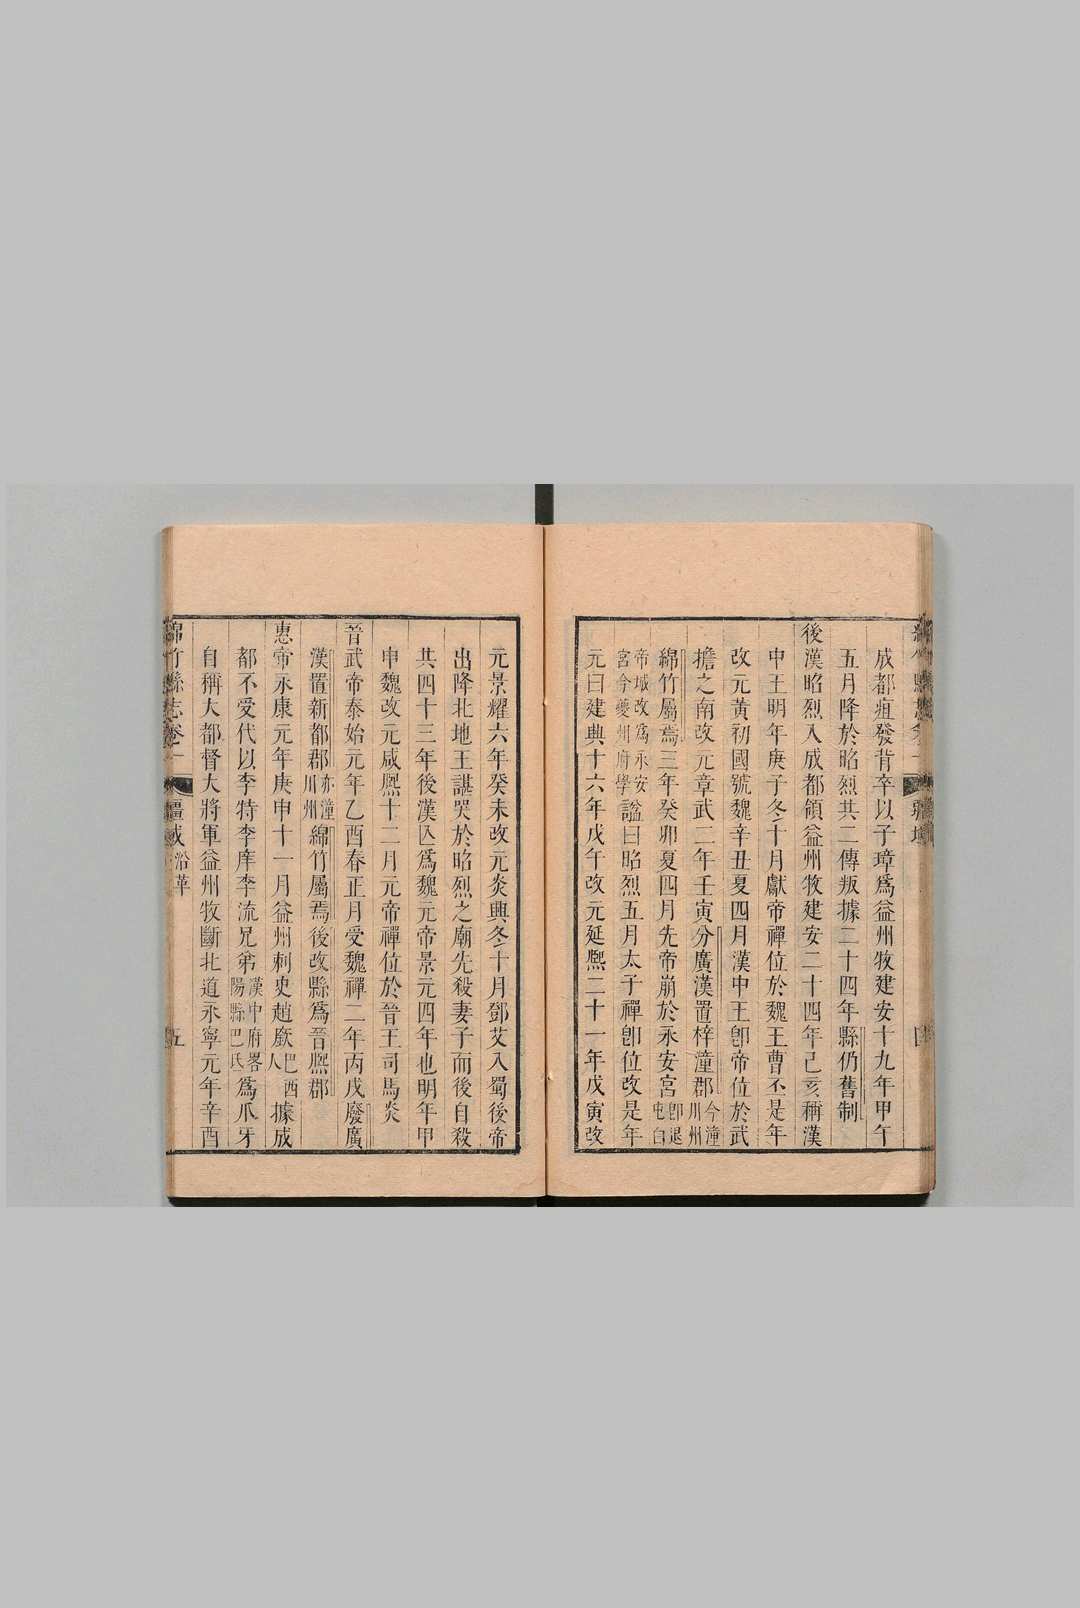 成都疽發背卒以子璋為益州牧建安十九年甲午
五月降於昭烈共二傳叛據二十四年縣仍舊制
後漢昭烈入成都領益州牧建安二十四年己亥稱漢
中王明年庚子冬十月獻帝禪位於魏王曹丕是年
改元黃初國號魏辛丑夏四月漢中王卽帝位於武
擔之南改元章武二年壬寅分廣漢置梓潼郡今潼川州
綿竹屬焉三年癸卯夏四月先帝崩於永安宮卽退屯白
帝城改為永安宮今夔州府學諡曰昭烈五月太子禪卽位改是年
元曰建興十六年戊午改元延熈二十一年戊寅改
元景耀六年癸未改元炎興冬十月鄧艾入蜀後帝
出降北地王諶哭於昭烈之廟先殺妻子而後自殺
共四十三年後漢亾為魏元帝景元四年也明年甲
申魏改元咸熈十二月元帝禪位於晉王司馬炎
晉武帝泰始元年乙酉春正月受魏禪二年丙戌廢廣
漢置新都郡亦潼川州綿竹屬焉後改縣為晉熈郡
惠帝永康元年庚申十一月益州刺史趙廞巴西人據成
都不受代以李特李庠李流兄弟漢中府畧陽縣巴氐為爪牙
自稱大都督大將軍益州牧斷北道永寧元年辛酉
綿竹縣志卷一 疆域 沿革 五